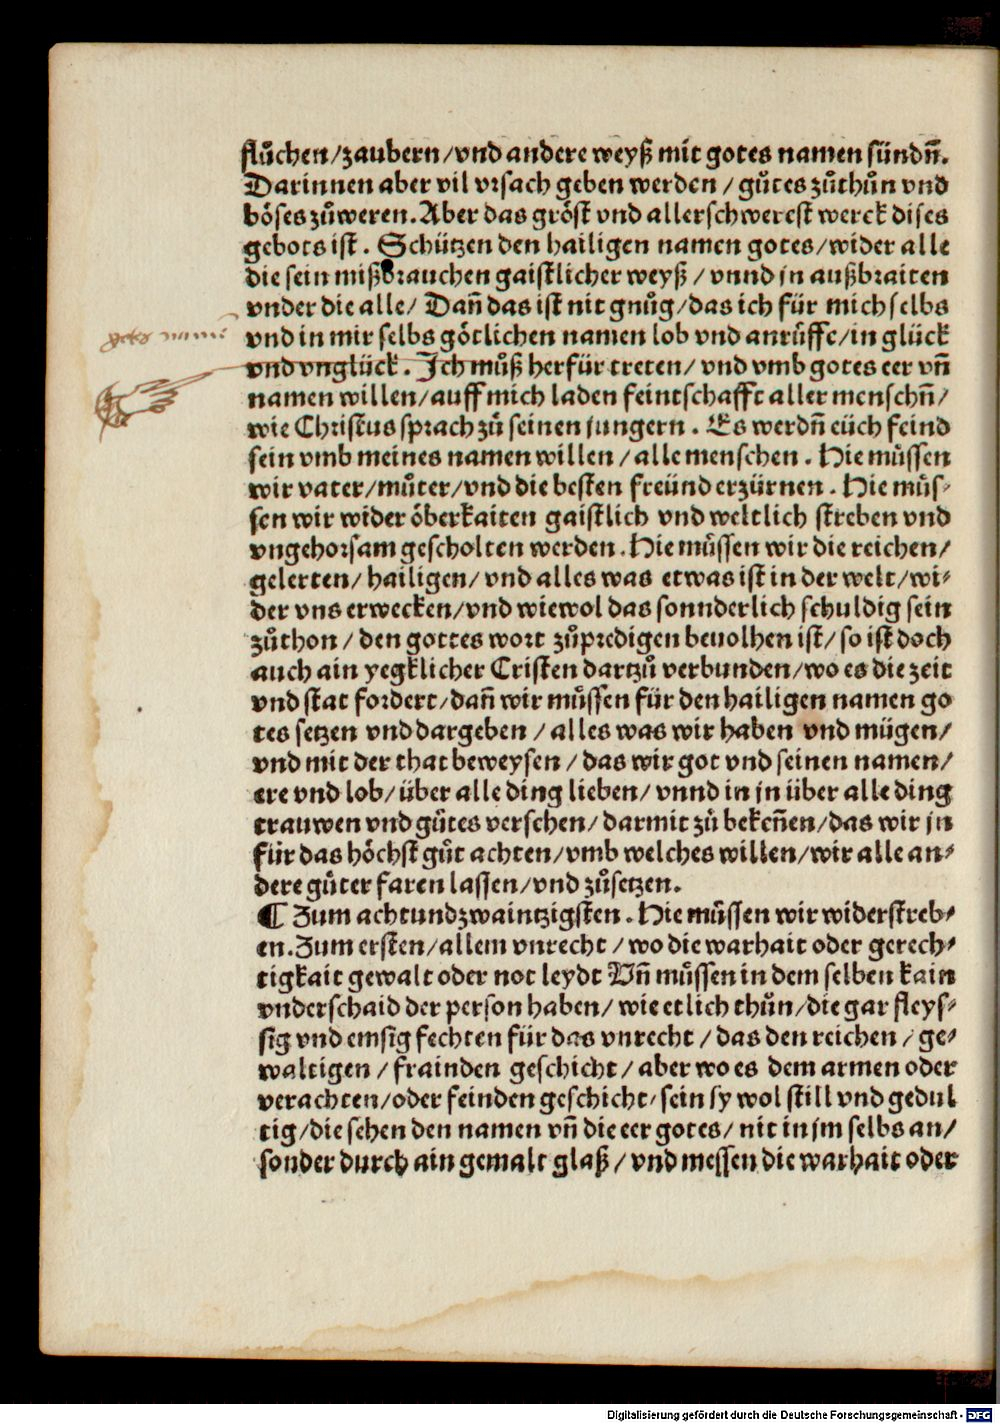 flůchen/zaubern/vnd andere weyß mit gotes namen sündn̄.
Darinnen aber vil vrsach geben werden / gůtes zůthůn vnd
böses zůweren. Aber das gröst vnd allerschwerest werck dises
gebots ist . Schützen den hailigen namen gotes/wider alle
die sein mißbrauchen gaistlicher weyß / vnnd jn außbraiten
vnder die alle/ Dan̄ das ist nit gnůg/das ich für mich selbs
vnd in mir selbs götlichen namen lob vnd anrůffe/in glück
vnd vnglück. Ich můß herfür treten/ vnd vmb gotes eer vn̄
namen willen/auff mich laden feintschafft aller menschn̄/
wie Christus sprach zů seinen jungern . Es werdn̄ eüch feind
sein vmb meines namen willen / alle menschen . Hie můssen
wir vater/můter/vnd die besten freünd erzürnen . Hie můs-
sen wir wider öberkaiten gaistlich vnd weltlich streben vnd
vngehorsam gescholten werden. Hie můssen wir die reichen/
gelerten/ hailigen/ vnd alles was etwas ist in der welt/wi-
der vns erwecken/vnd wiewol das sonnderlich schuldig sein
zůthon / den gottes wort zůpredigen beuolhen ist/ so ist doch
auch ain yegklicher Cristen dartzů verbunden/wo es die zeit
vnd stat fordert/dan̄ wir můssen für den hailigen namen go
tes setzen vnd dargeben / alles was wir haben vnd mügen/
vnd mit der that beweysen / das wir got vnd seinen namen/
ere vnd lob/über alle ding lieben/ vnnd in jn über alle ding
trauwen vnd gůtes versehen/ darmit zů beken̄en/das wir jn
für das höchst gůt achten/vmb welches willen/wir alle an-
dere gůter faren lassen/vnd zůsetzen.
¶ Zum achtundzwaintzigsten . Hie můssen wir widerstreb-
en. Zum ersten/allem vnrecht / wo die warhait oder gerech-
tigkait gewalt oder not leydt Vn̄ můssen in dem selben kain
vnderschaid der person haben/ wie etlich thůn/die gar fleys-
sig vnd emsig fechten für das vnrecht / das den reichen / ge-
waltigen / frainden geschicht/ aber wo es dem armen oder
verachten/oder feinden geschicht/ sein sy wol still vnd gedul
tig/die sehen den namen vn̄ die eer gotes/ nit in jm selbs an/
sonder durch ain gemalt glaß / vnd messen die warhait oder
gots name
Digitalisierung gefördert durch die Deutsche Forschungsgemeinschaft - DFG